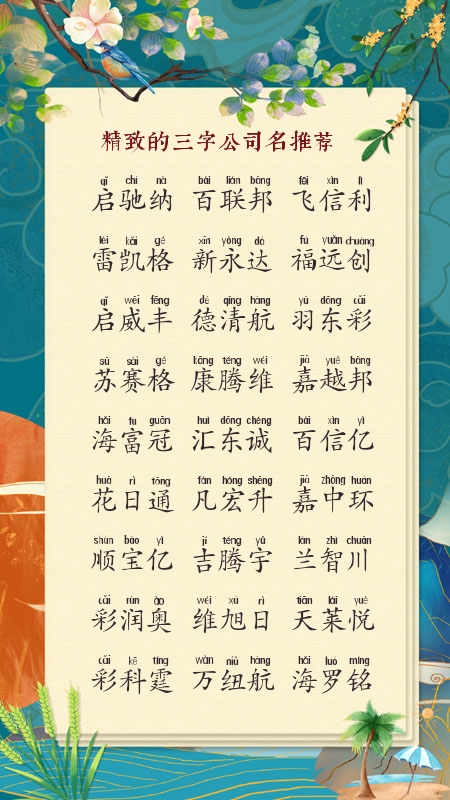 精致的三字公司名推荐
qǐ chí nà bǎi lián bāng fēi xìn lì
启驰纳 百联邦 飞信利
léi kǎi gé xīn yǒng dá fú yuǎn chuàng
雷凯格 新永达 福远创
qǐ wēi fēng dé qīng háng yǔ dōng cǎi
启威丰 德清航 羽东彩
sū sài gé kāng téng wéi jiā yuè bāng
苏赛格 康腾维 嘉越邦
hǎi fù guān huì dōng chéng bǎi xìn yì
海富冠 汇东诚 百信亿
huā rì tōng fán hóng shēng jiā zhōng huán
花日通 凡宏升 嘉中环
shùn bǎo yì jí téng yǔ lán zhì chuān
顺宝亿 吉腾宇 兰智川
cǎi rùn ào wéi xù rì tiān lái yuè
彩润奥 维旭日 天莱悦
cǎi kē tíng wàn niǔ háng hǎi luó míng
彩科霆 万纽航 海罗铭